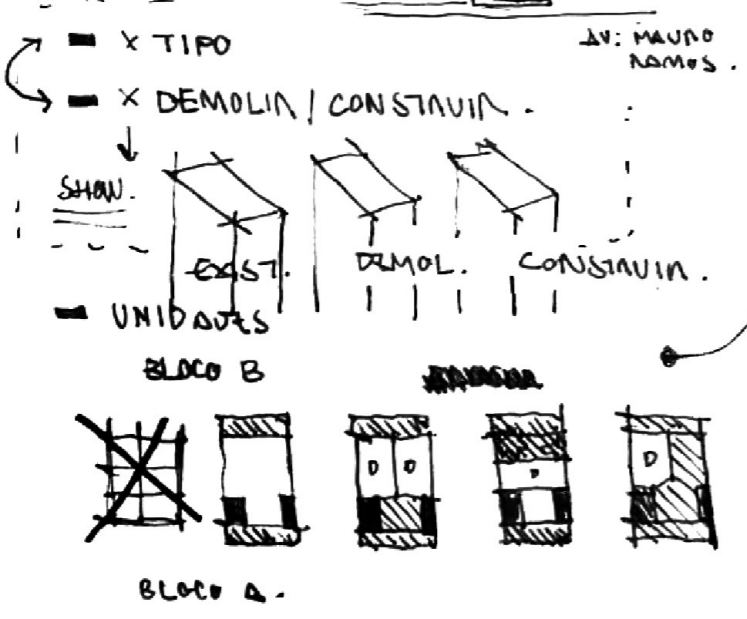 X TIPO
AV: MAURO
RAMOS.
X DEMOLIR / CONSTRUIR.
SHOW.
EXIST. DEMOL. CONSTRUIR.
UNIDADES
BLOCO B
D D D D
BLOCO A.